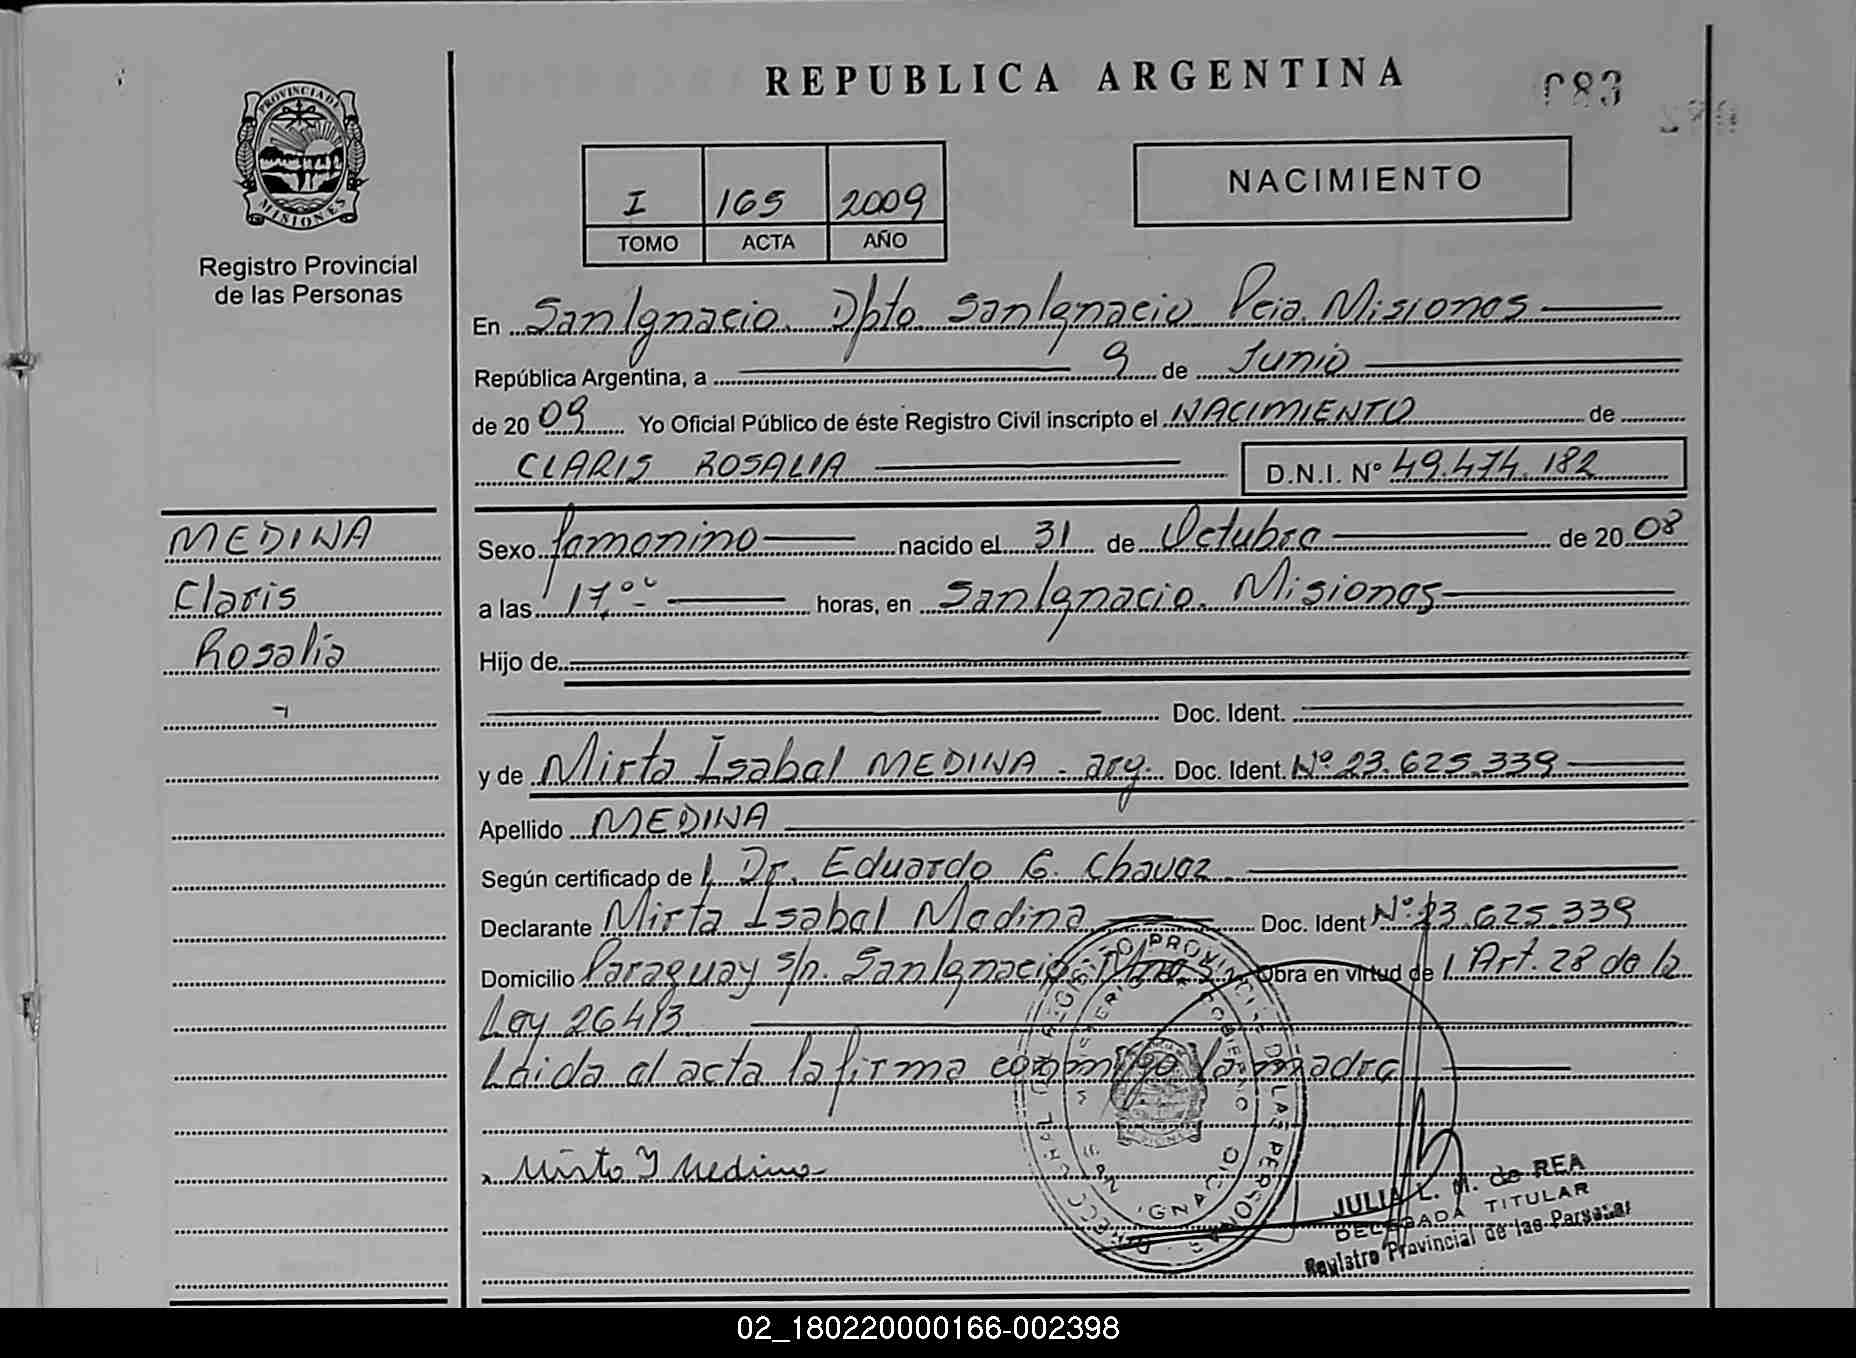 REPUBLICA ARGENTINA
083
PROVINCIA DE
MISIONES
Registro Provincial
de las Personas
I 165 2009
TOMO ACTA AÑO
NACIMIENTO
En San Ignacio. Dpto San Ignacio Pcia. Misiones
República Argentina, a 9 de Junio
de 2009 Yo Oficial Público de éste Registro Civil inscripto el NACIMIENTO de
CLARIS ROSALIA D.N.I. Nº 49.474.182
MEDINA
Claris
Rosalia
Sexo femenino nacido el 31 de Octubre de 2008
a las 17,00 horas, en San Ignacio. Misiones
Hijo de
Doc. Ident.
y de Mirta Isabel MEDINA - arg. Doc. Ident. Nº 23.625.339
Apellido MEDINA
Según certificado de Dr. Eduardo G. Chavez
Declarante Mirta Isabel Medina Doc. Ident Nº 23.625.339
Domicilio Paraguay s/n. San Ignacio Mnes Obra en virtud de Art. 28 de la
Ley 26413
Leida el acta la firma conmigo la madre
Mirta Y Medina
JULIA L. M. de REA
DELEGADA TITULAR
Registro Provincial de las Personas
02_180220000166-002398